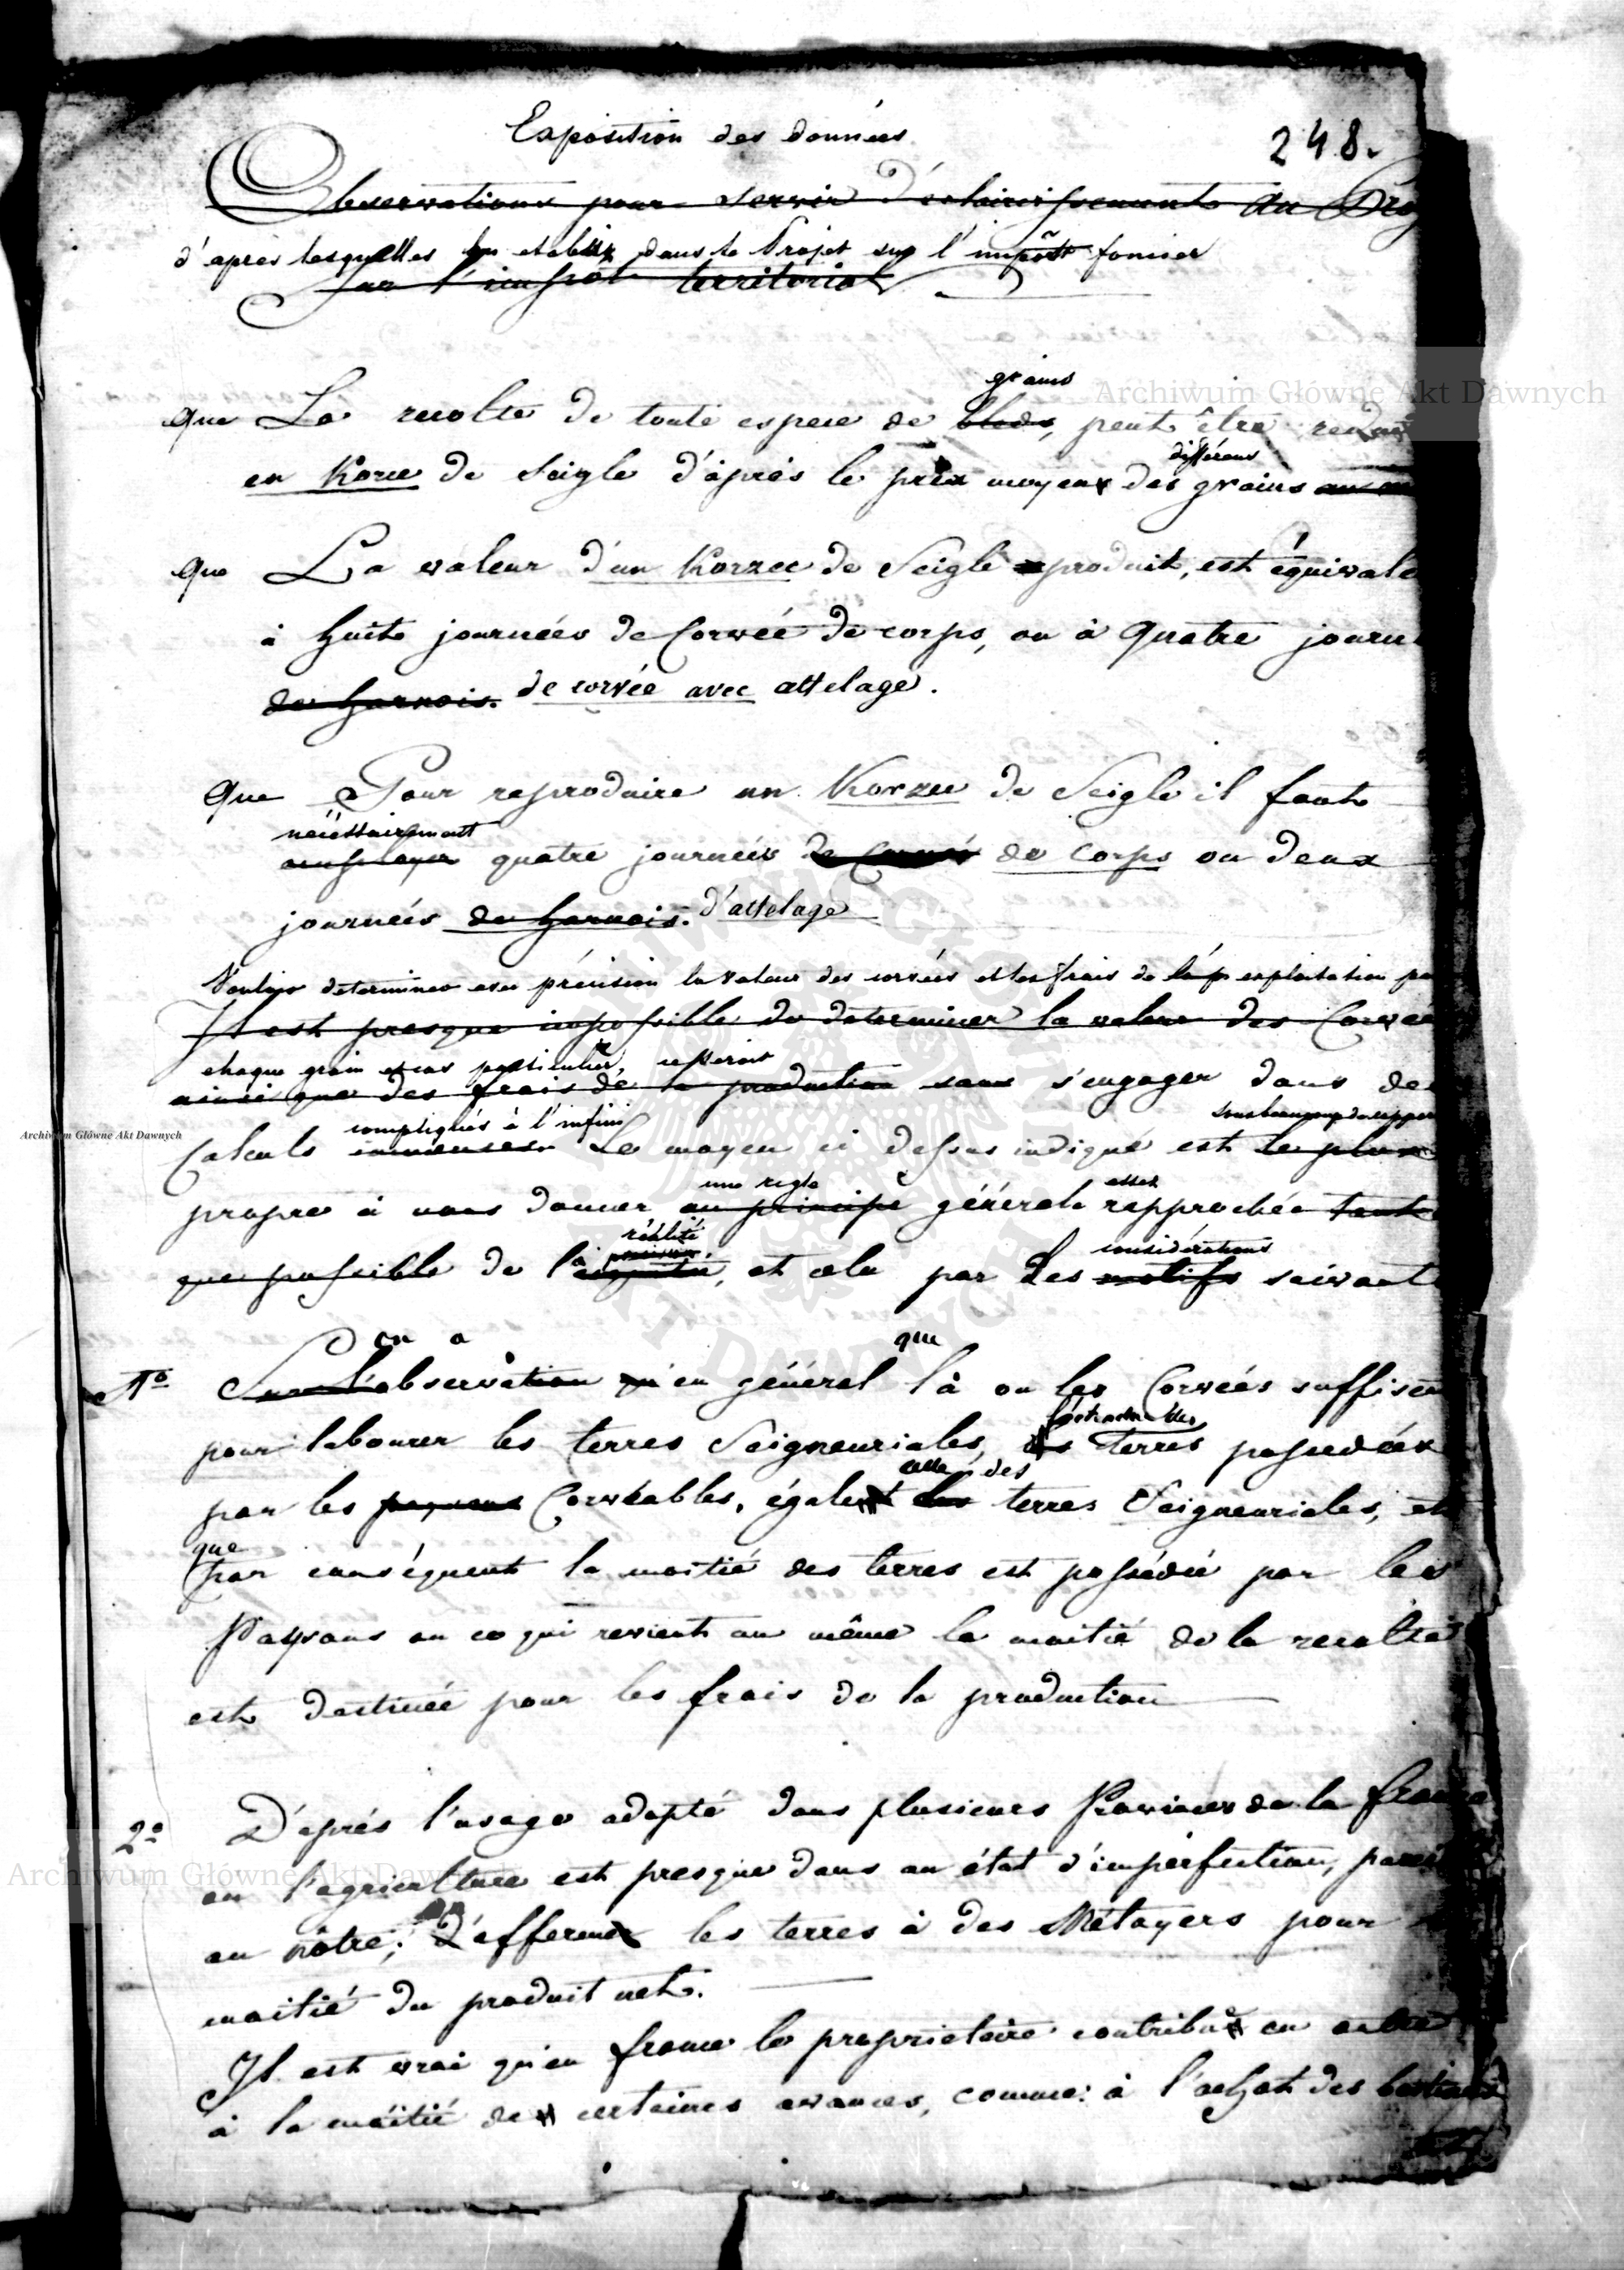 Exposition des données
248.
Observations pour servir d'éclaircissements au Proj
d'après lesquelles on etablir dans le Projet sur l'impôt foncier
sur l'impôt territorial
grains
que La recolte de toute espece de bleds, peut être redui
différens
en Korce de Seigle d'après le prix moyen des grains
que La valeur d'un Korzec de Seigle produit, est équivale
à huit journées de Corvée de corps, ou à quatre journ
de harnois. de corvée avec attelage.
que Pour reproduire un Korzec de Seigle il faut
nécéssairement
employer quatre journées de Corvée de corps ou deux
journées de harnois. d'attelage
Vouloir determiner avec précision la valeur des corvées et les frais de exploitation po
Il est presque impossible de determiner la valeur des Corvée
chaque grain et cas particulier, ce seroit
ainsi que des frais de la production sans s'engager dans de
compliqués à l'infini sous beaucoup de rappor
Calculs immenses. Le moyen ci dessus indiqué est le plus
une regle assez
propre à nous donner un principe générale rapprochée tant
réalité
considérations
que possible de la, et cela par des motifs suivants
on a que
1º Sur l'observation qu'en général là ou les Corvées suffisen
l'étendue des
pour labourer les terres Seigneuriales, les terres possedées
celle des
par les paysans Corvéables, égalent les terres Seigneuriales, et
que
par conséquent la moitié des terres est possédée par les
Paysans ou ce qui revient au même la moitié de la recolte
est destinée pour les frais de la production
2º D'après l'usage adopté dans plusieurs Provinces de la France
ou l'agriculture est presque dans un état d'imperfection, pareil
au nôtre; d'affermer les terres à des Métayers pour
moitié du produit net.
Il est vrai qu'en france le proprietaire contribue en outre
à la moitié de certaines avances, comme: à l'achat des bestiaux
Archiwum Główne Akt Dawnych
Archiwum Główne Akt Dawnych
Archiwum Główne Akt Dawnych